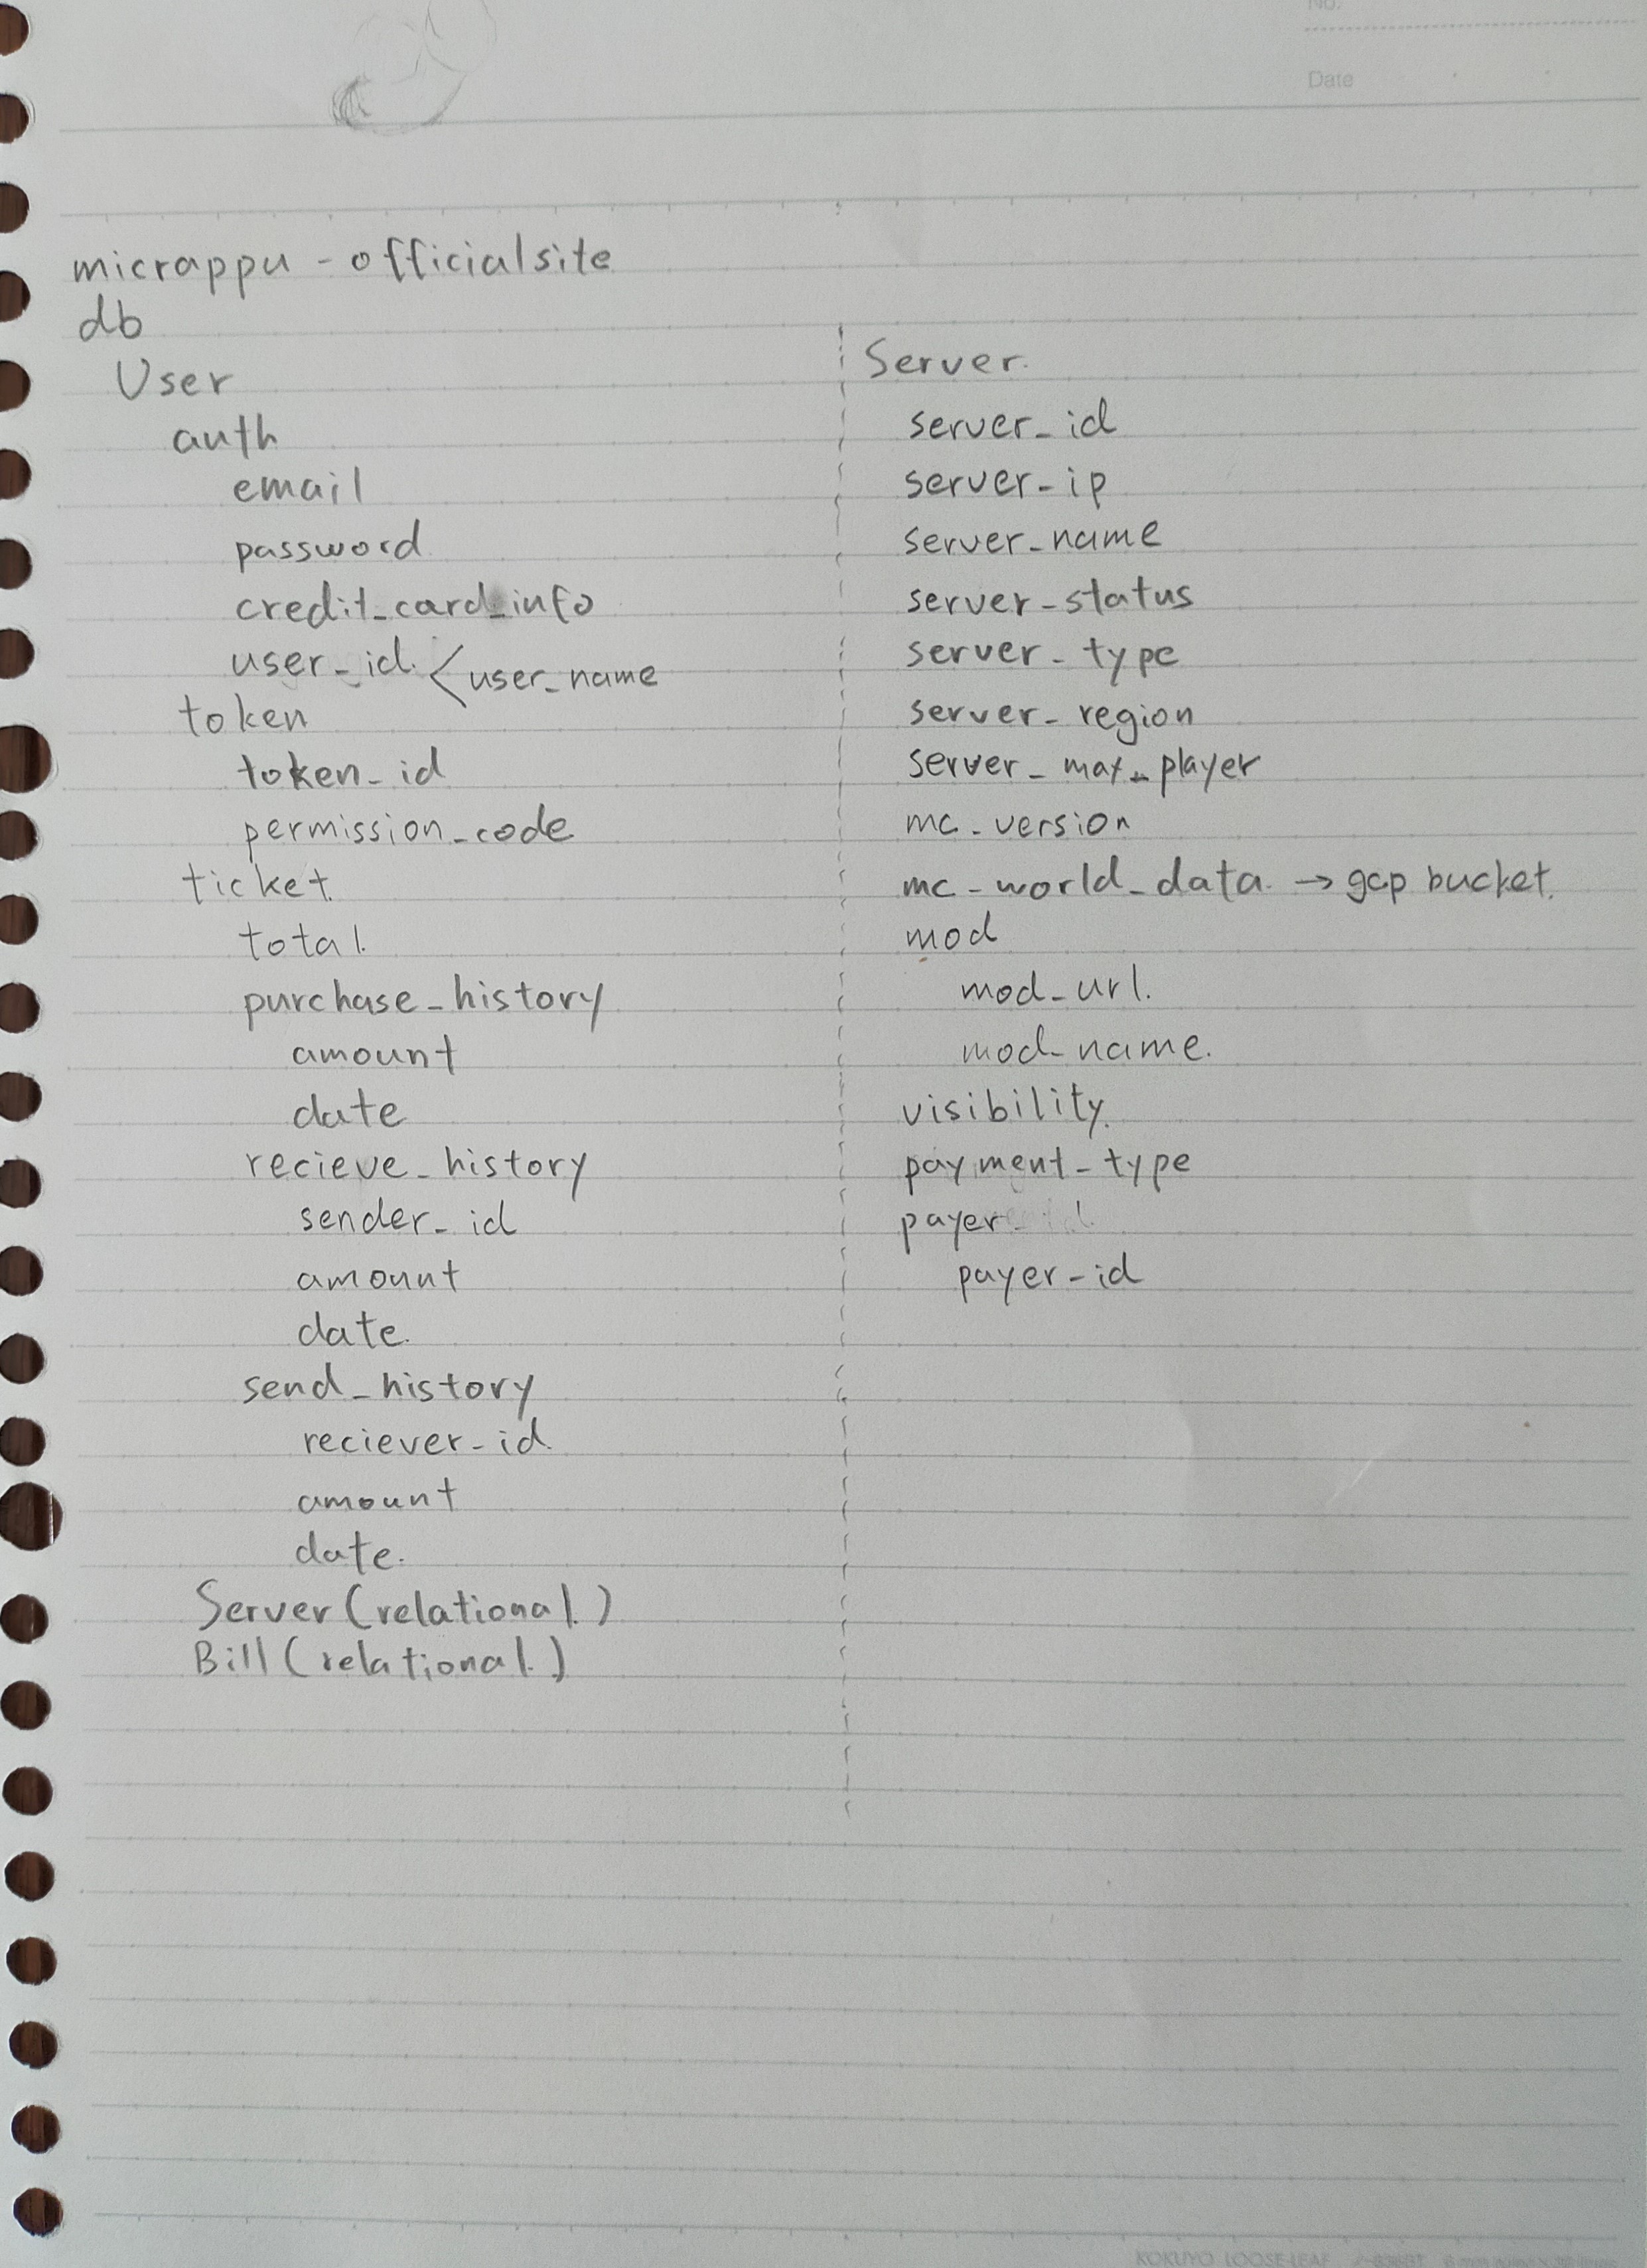 No.
Date
micrappu - officialsite
db
User
auth
email
password
credit_card_info
user_id < user_name
token
token_id
permission_code
ticket
total
purchase_history
amount
date
recieve_history
sender_id
amount
date
send_history
reciever_id
amount
date
Server (relational)
Bill (relational)
Server
server_id
server_ip
server_name
server_status
server_type
server_region
server_max_player
mc_version
mc_world_data → gcp bucket
mod
mod_url
mod_name
visibility
payment_type
payer
payer_id
KOKUYO LOOSE-LEAF